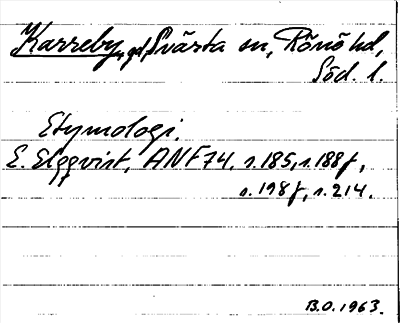 Karreby, gd, Svärta sn, Rönö hd,
Söd. l.
Etymologi.
E. Elgqvist, ANF 74, s. 185, s. 188 f,
s. 198 f, s. 214.
B.O. 1963.